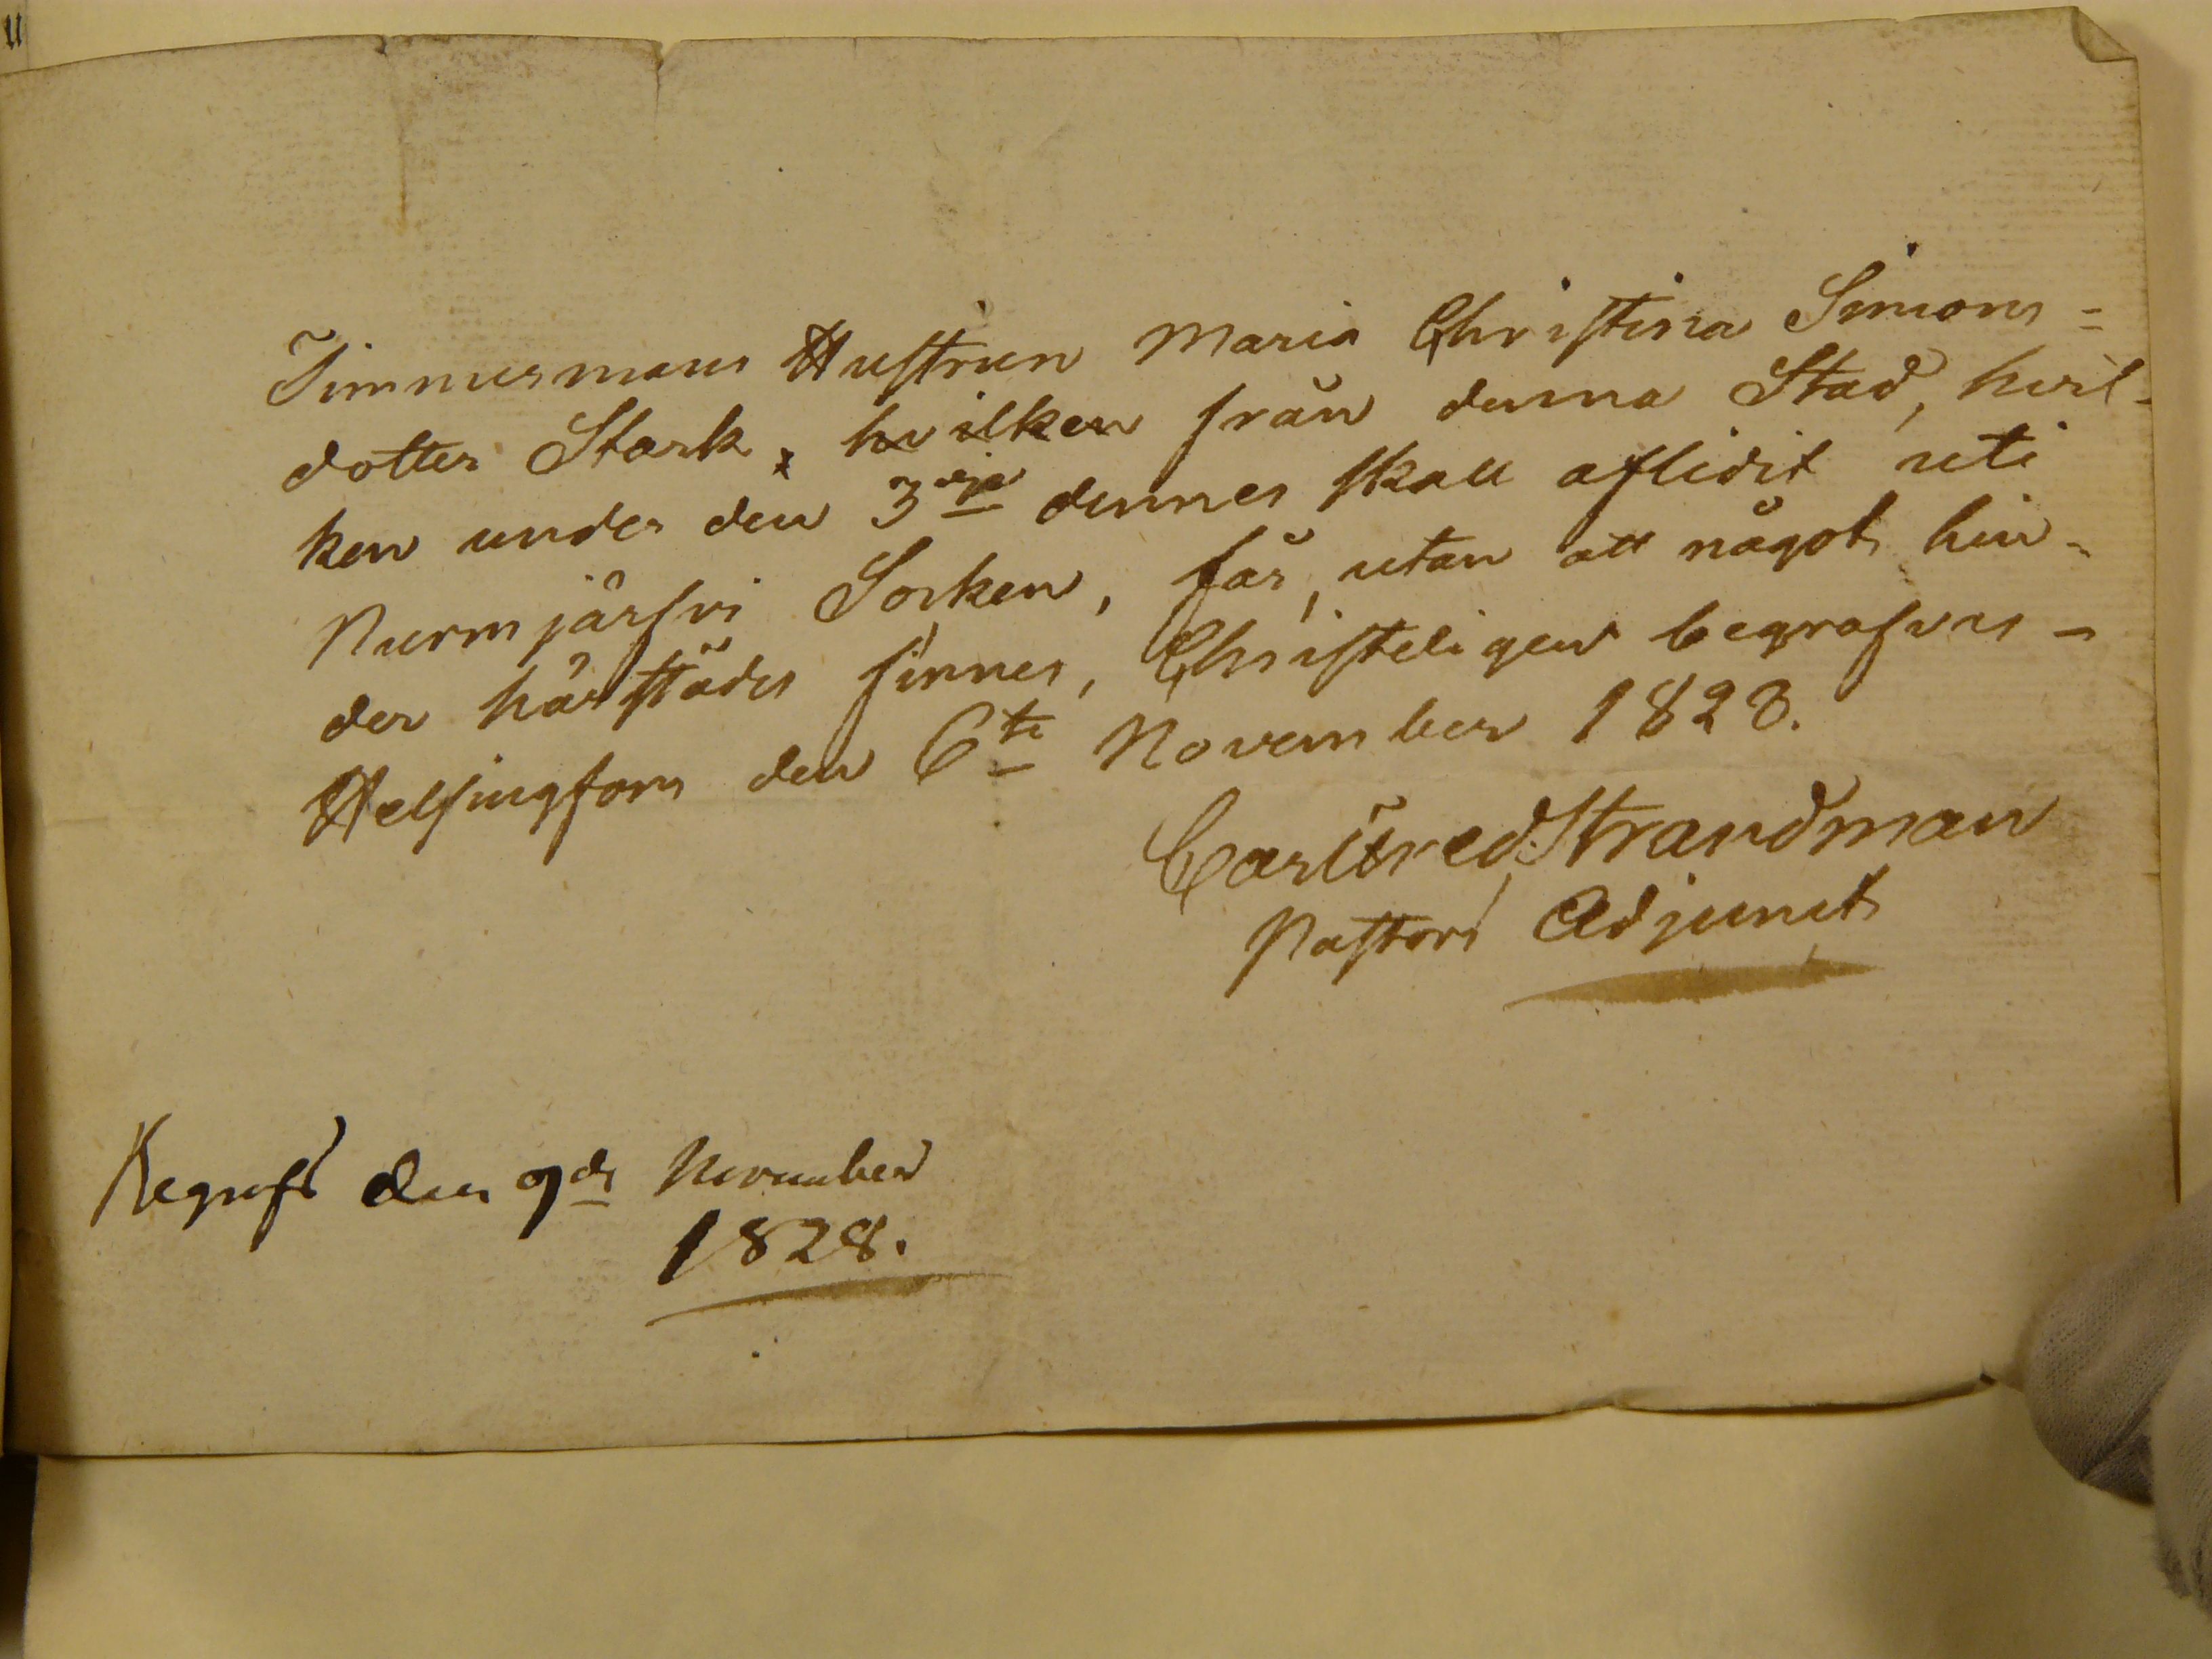 Timmermans Hustrun Maria Christina Simons=
dotter Stark, hvilken från denna Stad, hvil-
ken under den 3dje dennes skall aflidit uti
Nurmjärfvi Socken, får, utan att något hin-
der härstädes finnes, Christeligen begrafvas -
Helsingfors den 6te November 1828.
Carl Fred. Strandman
Pastors Adjunct
Begrafd den 9de November
1828.